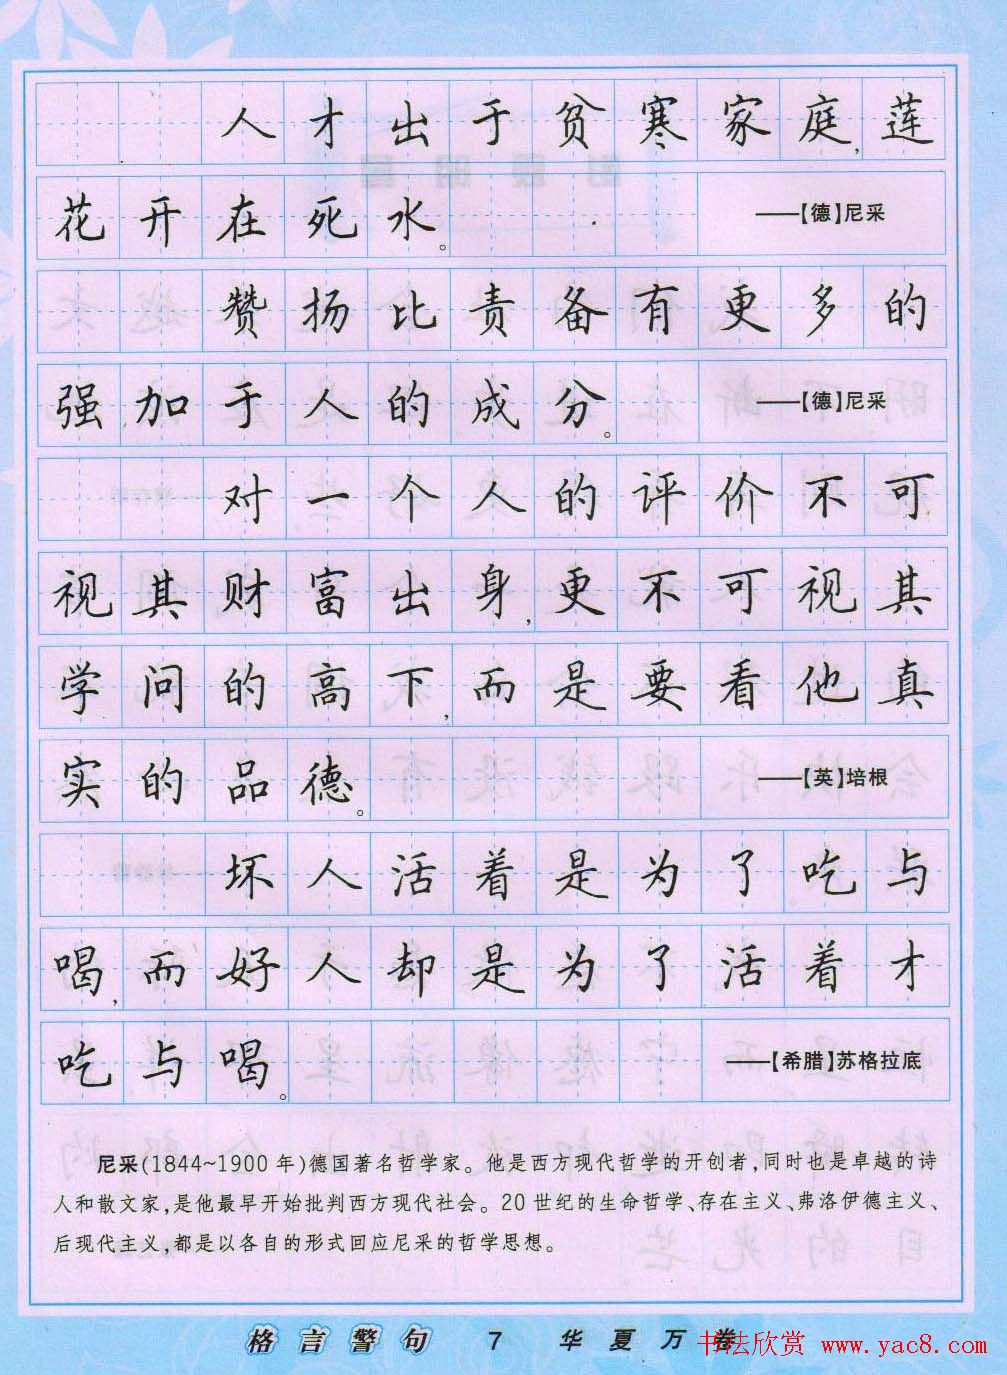 人才出于贫寒家庭,莲
花开在死水。 ——【德】尼采
赞扬比责备有更多的
强加于人的成分。 ——【德】尼采
对一个人的评价不可
视其财富出身,更不可视其
学问的高下,而是要看他真
实的品德。 ——【英】培根
坏人活着是为了吃与
喝,而好人却是为了活着才
吃与喝。 ——【希腊】苏格拉底
尼采(1844~1900年)德国著名哲学家。他是西方现代哲学的开创者,同时也是卓越的诗
人和散文家,是他最早开始批判西方现代社会。20世纪的生命哲学、存在主义、弗洛伊德主义、
后现代主义,都是以各自的形式回应尼采的哲学思想。
格言警句 7 华夏万卷
书法欣赏 www.yac8.com